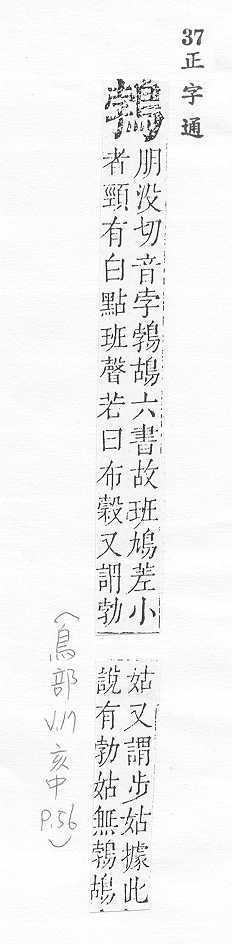 37 正字通
鵓
朋没切音孛鵓鴣六書故班鳩差小
者頸有白點班聲若曰布穀又謂勃
姑又謂步姑據此
說有勃姑無鵓鴣
(鳥部 V.17 亥中 P.56)